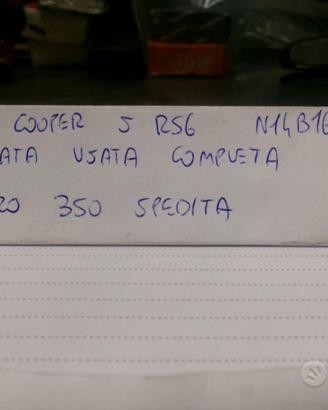 COOPER S R56 N14B16
ATA USATA COMPLETA
350 SPEDITA